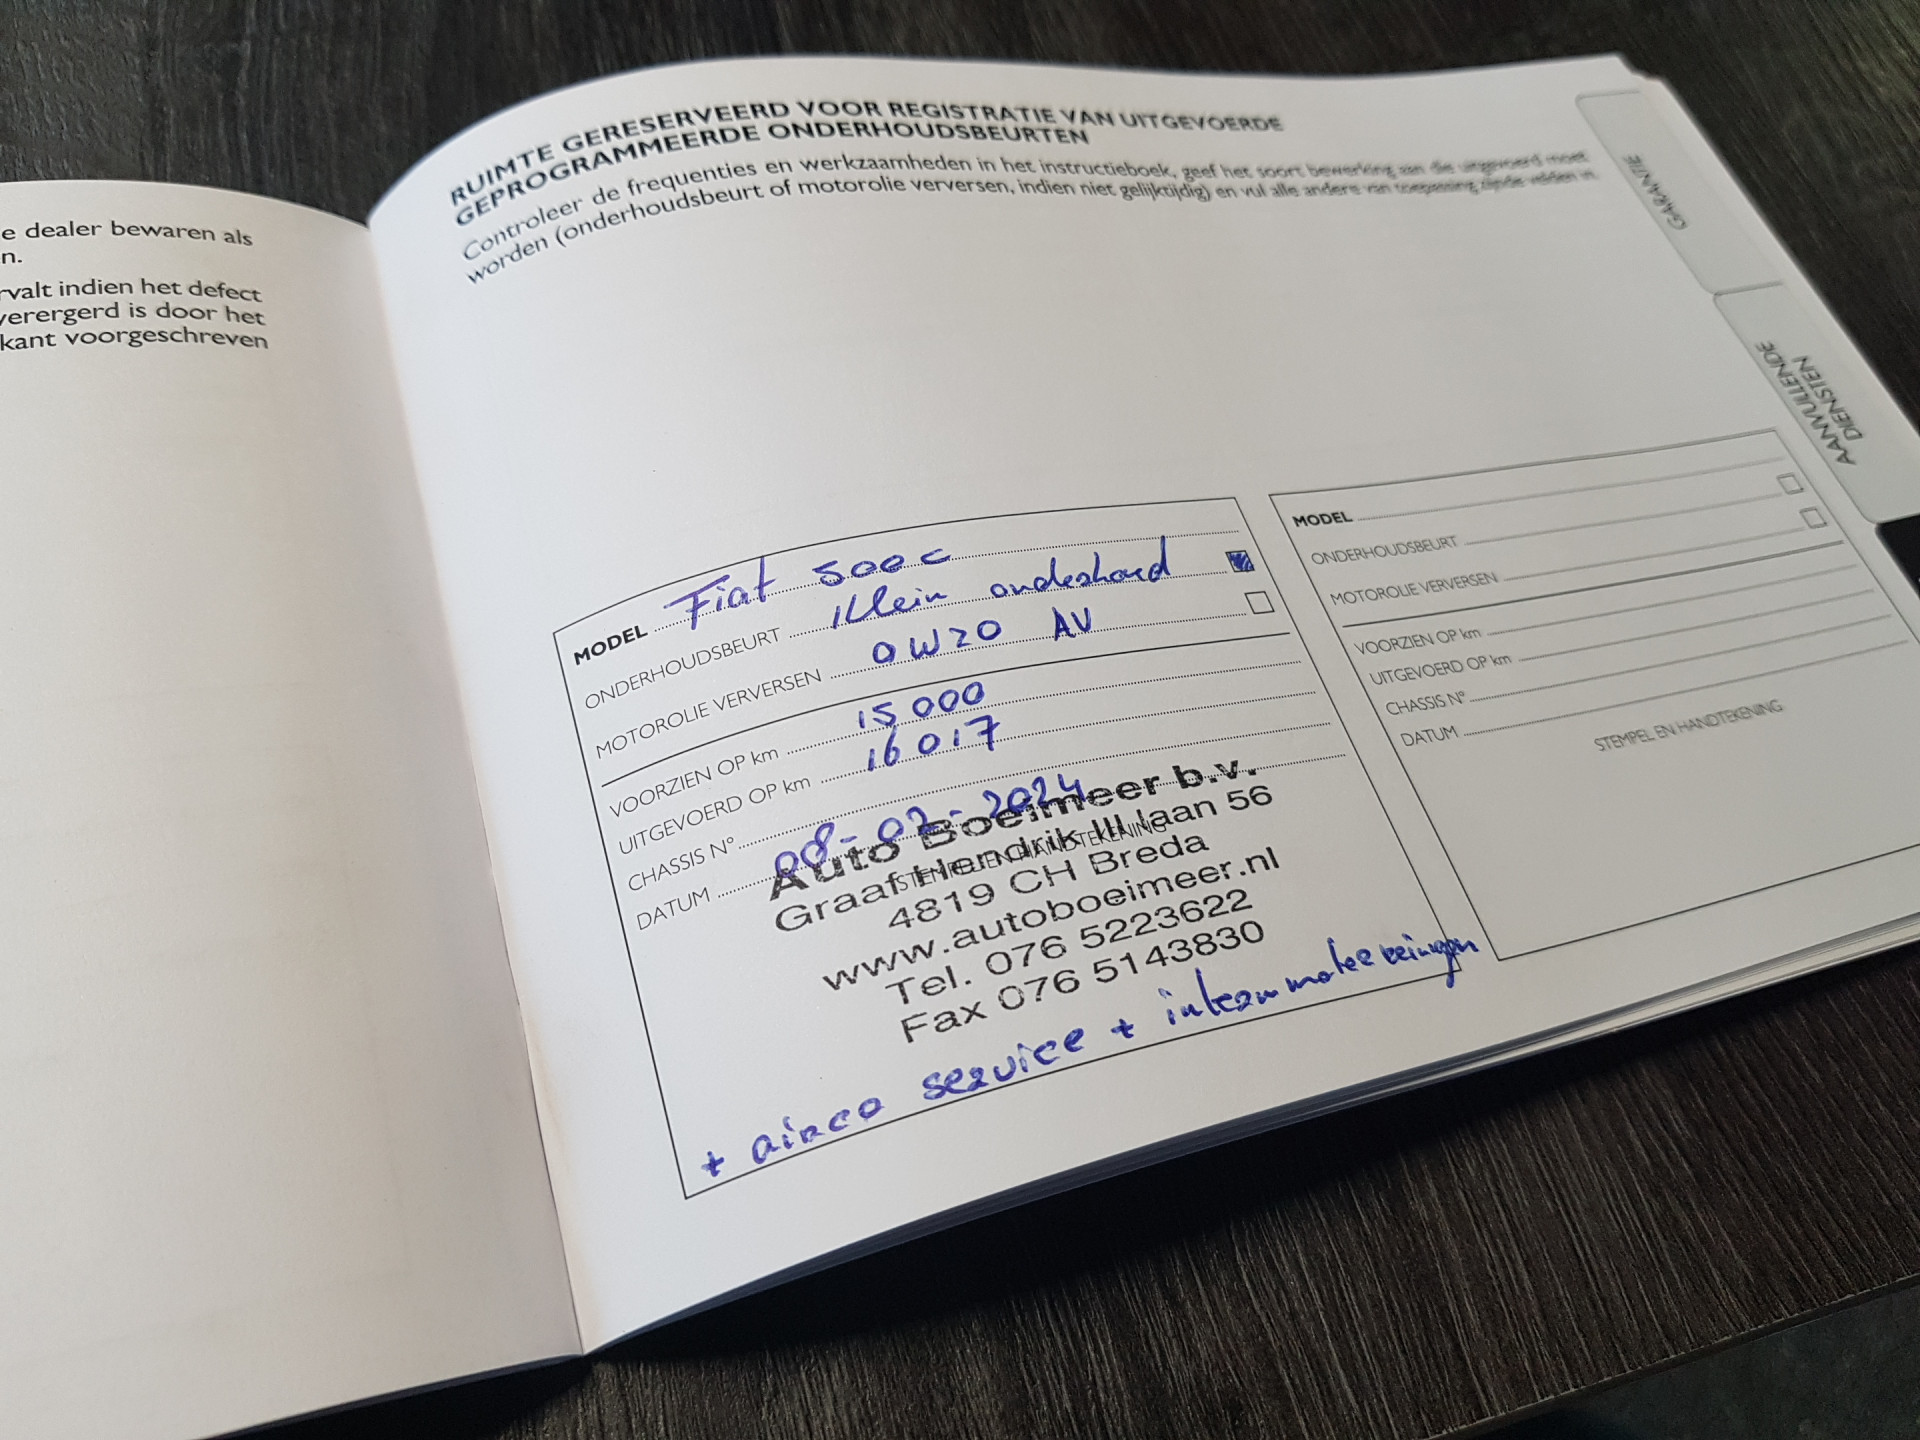 e dealer bewaren als
n.
rvalt indien het defect
verergerd is door het
kant voorgeschreven
RUIMTE GERESERVEERD VOOR REGISTRATIE VAN UITGEVOERDE
GEPROGRAMMEERDE ONDERHOUDSBEURTEN
Controleer de frequenties en werkzaamheden in het instructieboek, geef het soort bewerking aan die uitgevoerd moet
worden (onderhoudsbeurt of motorolie verversen, indien niet gelijktijdig) en vul alle andere van toepassing zijnde velden in.
GARANTIE
AANVULLENDE
DIENSTEN
MODEL Fiat 500c
ONDERHOUDSBEURT Klein onderhoud
MOTOROLIE VERVERSEN 0W20 AV
VOORZIEN OP km 15000
UITGEVOERD OP km 16017
CHASSIS N°
DATUM 08-02-2024
STEMPEL EN HANDTEKENING
Auto Boeimeer b.v.
Graaf Hendrik III laan 56
4819 CH Breda
www.autoboeimeer.nl
Tel. 076 5223622
Fax 076 5143830
+ airco service +
MODEL
ONDERHOUDSBEURT
MOTOROLIE VERVERSEN
VOORZIEN OP km
UITGEVOERD OP km
CHASSIS N°
DATUM
STEMPEL EN HANDTEKENING